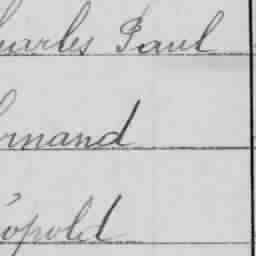 harles Paul
ernand
éopold